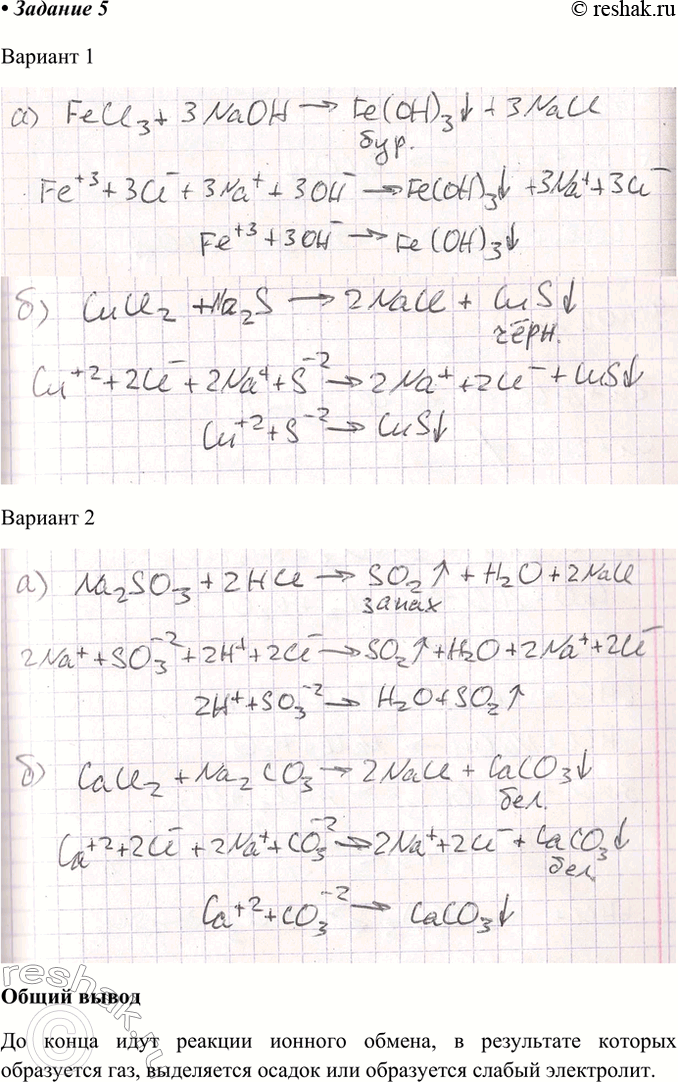 • Задание 5 © reshak.ru
Вариант 1
а) FeCl₃ + 3NaOH → Fe(OH)₃↓ + 3NaCl
бур.
Fe⁺³ + 3Cl⁻ + 3Na⁺ + 3OH⁻ → Fe(OH)₃↓ + 3Na⁺ + 3Cl⁻
Fe⁺³ + 3OH⁻ → Fe(OH)₃↓
б) CuCl₂ + Na₂S → 2NaCl + CuS↓
чёрн.
Cu⁺² + 2Cl⁻ + 2Na⁺ + S⁻² → 2Na⁺ + 2Cl⁻ + CuS↓
Cu⁺² + S⁻² → CuS↓
Вариант 2
а) Na₂SO₃ + 2HCl → SO₂↑ + H₂O + 2NaCl
запах
2Na⁺ + SO₃⁻² + 2H⁺ + 2Cl⁻ → SO₂↑ + H₂O + 2Na⁺ + 2Cl⁻
2H⁺ + SO₃⁻² → H₂O + SO₂↑
б) CaCl₂ + Na₂CO₃ → 2NaCl + CaCO₃↓
бел.
Ca⁺² + 2Cl⁻ + 2Na⁺ + CO₃⁻² → 2Na⁺ + 2Cl⁻ + CaCO₃↓
бел.
Ca⁺² + CO₃⁻² → CaCO₃↓
Общий вывод
До конца идут реакции ионного обмена, в результате которых
образуется газ, выделяется осадок или образуется слабый электролит.
reshak.ru